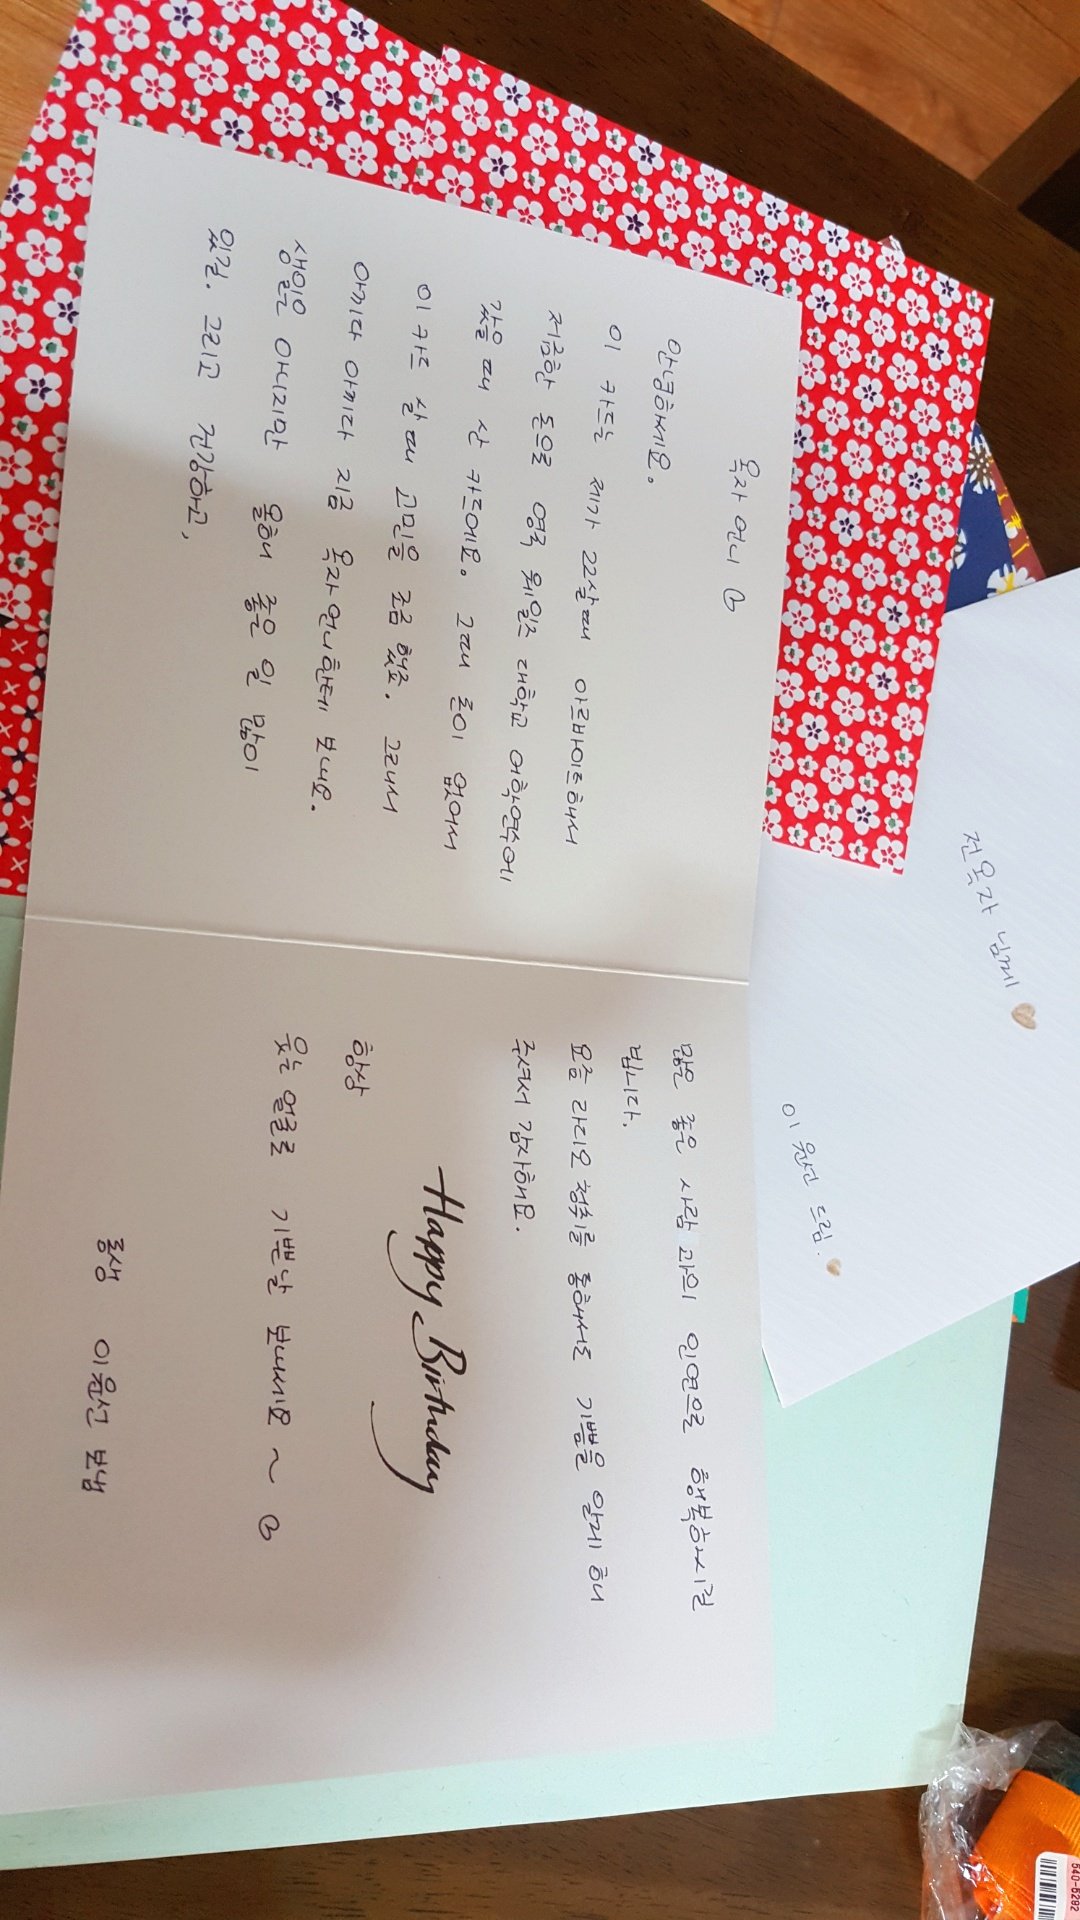 옥자 언니
안녕하세요.
이 카드는 제가 22살때 아르바이트해서
저금한 돈으로 영국 웨일즈 대학교 어학연수에
갔을 때 산 카드예요. 그때 돈이 없어서
이 카드 살 때 고민을 조금 했죠. 그래서
아끼다 아끼다 지금 옥자언니한테 보내요.
생일은 아니지만 올해 좋은 일 많이
있길. 그리고 건강하고,
많은 좋은 사람과의 인연으로 행복하시길
빕니다.
요즘 라디오 청취를 통해서도 기쁨을 알게 해
주셔서 감사해요.
Happy Birthday
항상
웃는 얼굴로 기쁜날 보내세요~
동생 이윤선 보냄
전옥자 님께
이윤선 드림.
540-6292